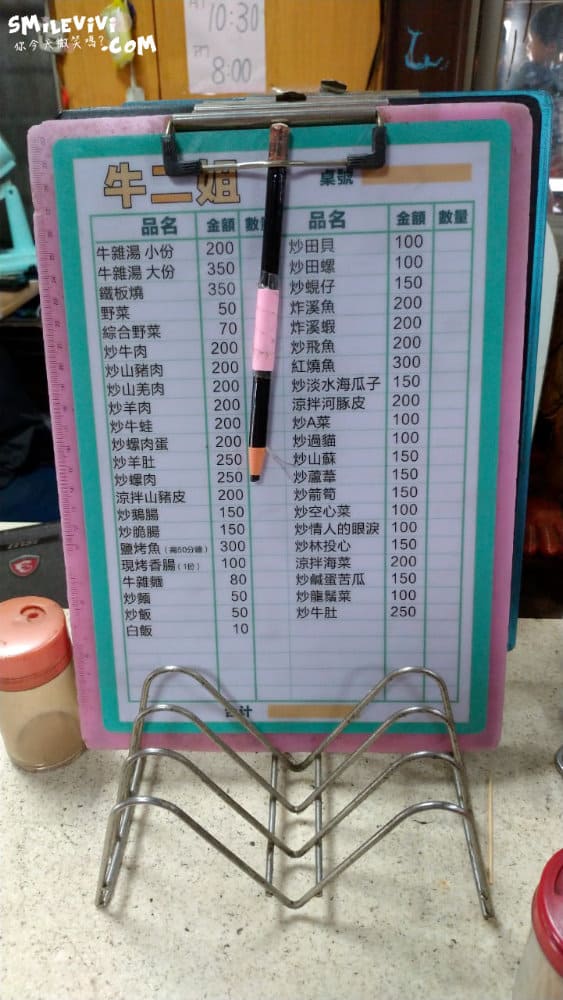 SMiLEViVi
你今天微笑嗎?.COM
AM 10:30
8:00
牛二姐
桌號
品名 金額 數量 品名 金額 數量
牛雜湯 小份 200
牛雜湯 大份 350
鐵板燒 350
野菜 50
綜合野菜 70
炒牛肉 200
炒山豬肉 200
炒山羌肉 200
炒羊肉 200
炒牛蛙 200
炒螺肉蛋 200
炒羊肚 250
炒螺肉 250
涼拌山豬皮 200
炒鵝腸 150
炒脆腸 150
鹽烤魚(需50分鐘) 300
現烤香腸(1份) 100
牛雜麵 80
炒麵 50
炒飯 50
白飯 10
炒田貝 100
炒田螺 100
炒蜆仔 150
炸溪魚 200
炸溪蝦 200
炒飛魚 200
紅燒魚 300
炒淡水海瓜子 150
涼拌河豚皮 200
炒A菜 100
炒過貓 100
炒山蘇 150
炒蘆葦 150
炒箭筍 150
炒空心菜 100
炒情人的眼淚 100
炒林投心 150
涼拌海菜 200
炒鹹蛋苦瓜 150
炒龍鬚菜 100
炒牛肚 250
合計